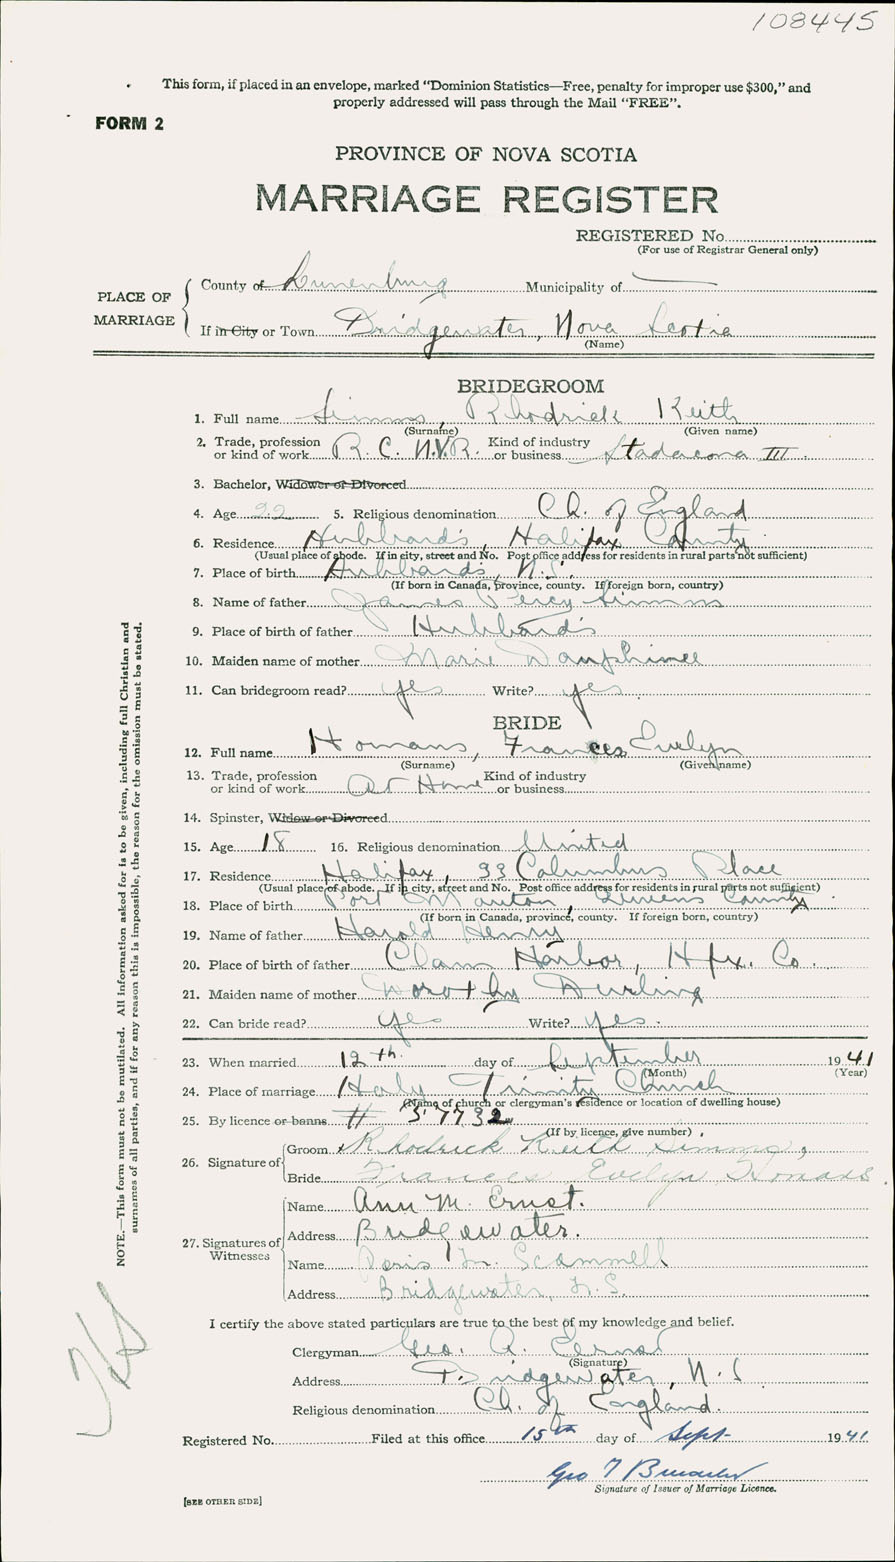 108445
This form, if placed in an envelope, marked "Dominion Statistics—Free, penalty for improper use $300," and
properly addressed will pass through the Mail "FREE".
FORM 2
PROVINCE OF NOVA SCOTIA
MARRIAGE REGISTER
REGISTERED No.
(For use of Registrar General only)
PLACE OF MARRIAGE
County of Lunenburg Municipality of —
If in City or Town Bridgewater, Nova Scotia
(Name)
BRIDEGROOM
1. Full name Simms, Rhodrick Keith
(Surname) (Given name)
2. Trade, profession or kind of work R. C. N.V.R. Kind of industry or business Stadacona III.
3. Bachelor, Widower or Divorced
4. Age 22 5. Religious denomination Ch. of England
6. Residence Hubbards, Halifax County
(Usual place of abode. If in city, street and No. Post office address for residents in rural parts not sufficient)
7. Place of birth Hubbards, N.S.
(If born in Canada, province, county. If foreign born, country)
8. Name of father James Percy Simms
9. Place of birth of father Hubbards
10. Maiden name of mother Marie Dauphinee
11. Can bridegroom read? yes Write? yes
BRIDE
12. Full name Homans, Frances Evelyn
(Surname) (Given name)
13. Trade, profession or kind of work At Home Kind of industry or business
14. Spinster, Widow or Divorced
15. Age 18 16. Religious denomination United
17. Residence Halifax, 33 Columbus Place
(Usual place of abode. If in city, street and No. Post office address for residents in rural parts not sufficient)
18. Place of birth Port Mouton, Queens County
(If born in Canada, province, county. If foreign born, country)
19. Name of father Harold Henry
20. Place of birth of father Clam Harbor, Hfx. Co.
21. Maiden name of mother Dorothy Durling
22. Can bride read? yes Write? yes.
23. When married 12th day of September 1941
(Month) (Year)
24. Place of marriage Holy Trinity Church
(Name of church or clergyman's residence or location of dwelling house)
25. By licence or banns # 37732
(If by licence, give number)
26. Signature of
Groom Rhodrick Keith Simms,
Bride Frances Evelyn Homans
27. Signatures of Witnesses
Name Ann M. Ernst.
Address Bridgewater.
Name Doris M. Scammell
Address Bridgewater, N.S.
I certify the above stated particulars are true to the best of my knowledge and belief.
Clergyman Geo. A. Ernst
(Signature)
Address Bridgewater, N.S
Religious denomination Ch. of England.
Registered No. Filed at this office 15th day of Sept. 1941
Geo T
Signature of Issuer of Marriage Licence.
[SEE OTHER SIDE]
NOTE.—This form must not be mutilated. All information asked for is to be given, including full Christian and
surnames of all parties, and if for any reason this is impossible, the reason for the omission must be stated.